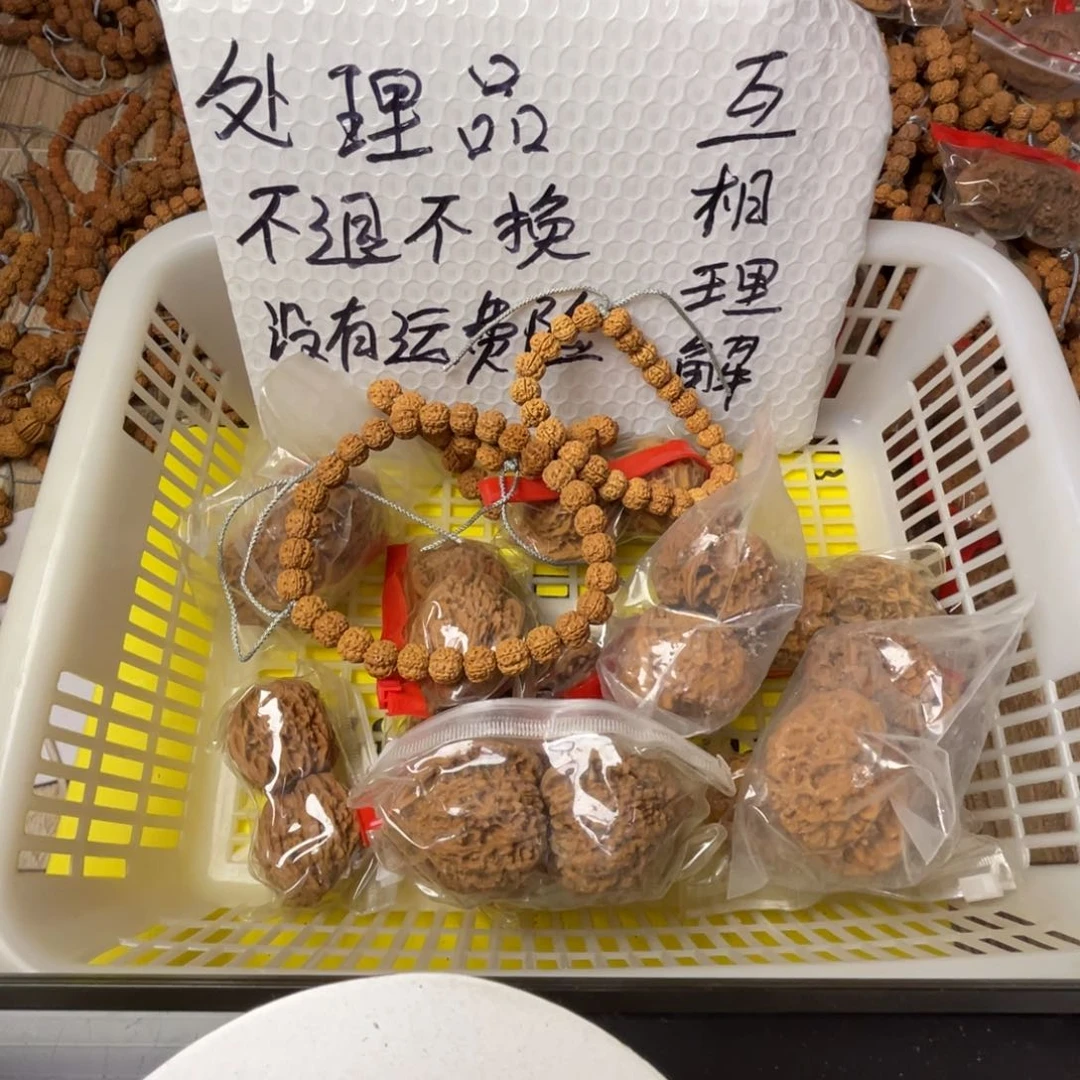 处理品
不退不换
没有运费险
互相理解